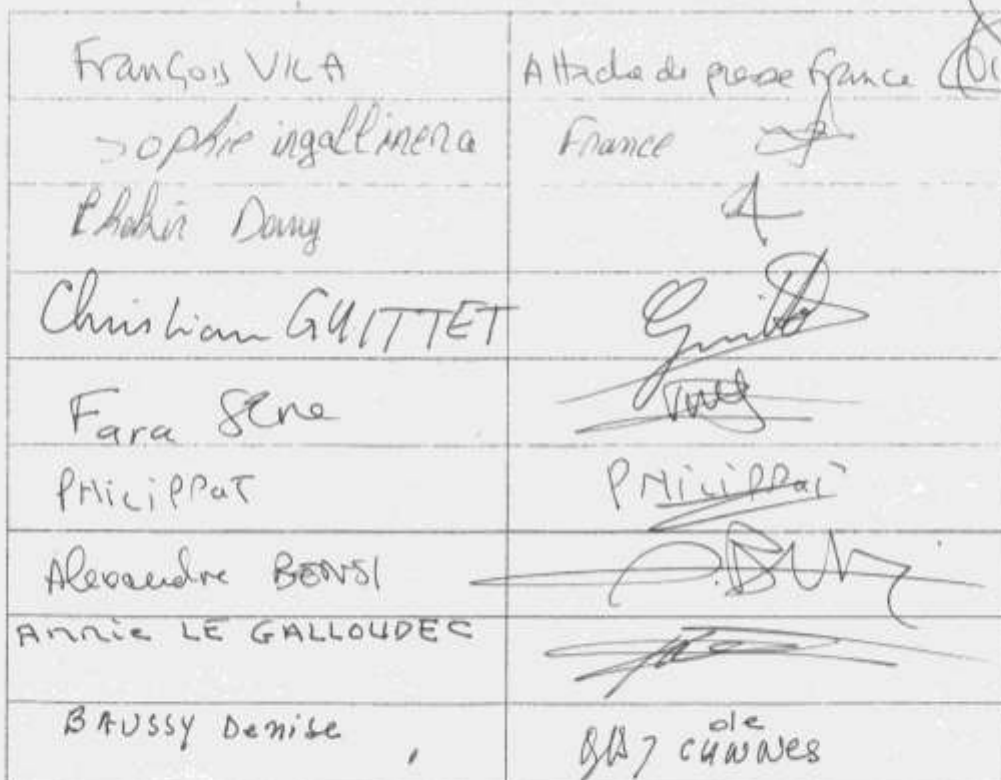 François VILA Attaché de presse France
Sophie ingallinera France
Dany
Christian GUITTET
Fara Sene
PHiliPPaT PHiliPPaT
Alexandre BENSI
Annie LE GALLOUDEC
BAUSSY Denise de CANNES